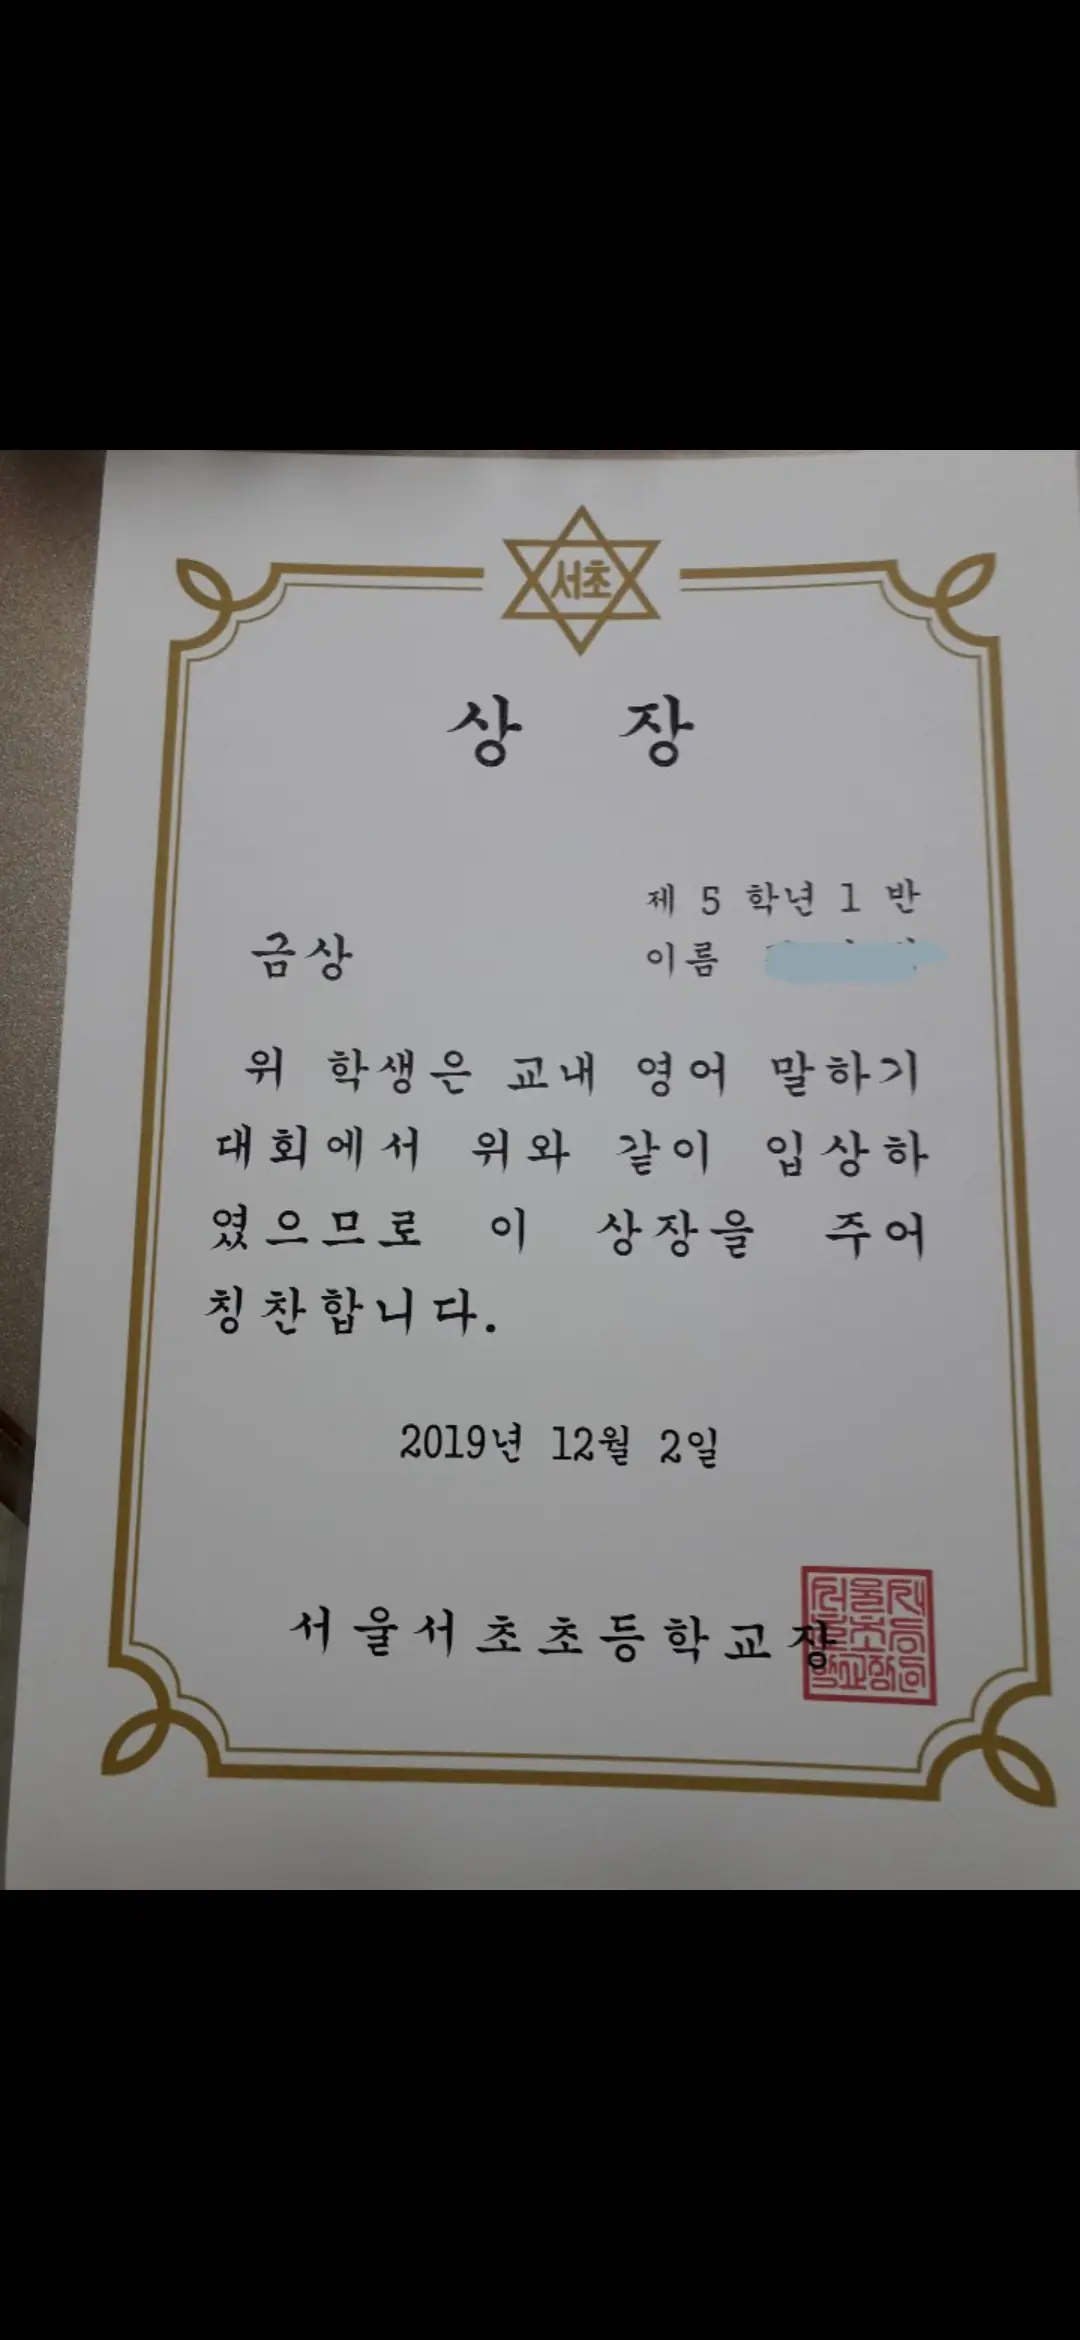 서초
상 장
제 5 학년 1 반
금상
이름
위 학생은 교내 영어 말하기
대회에서 위와 같이 입상하
였으므로 이 상장을 주어
칭찬합니다.
2019년 12월 2일
서울서초초등학교장